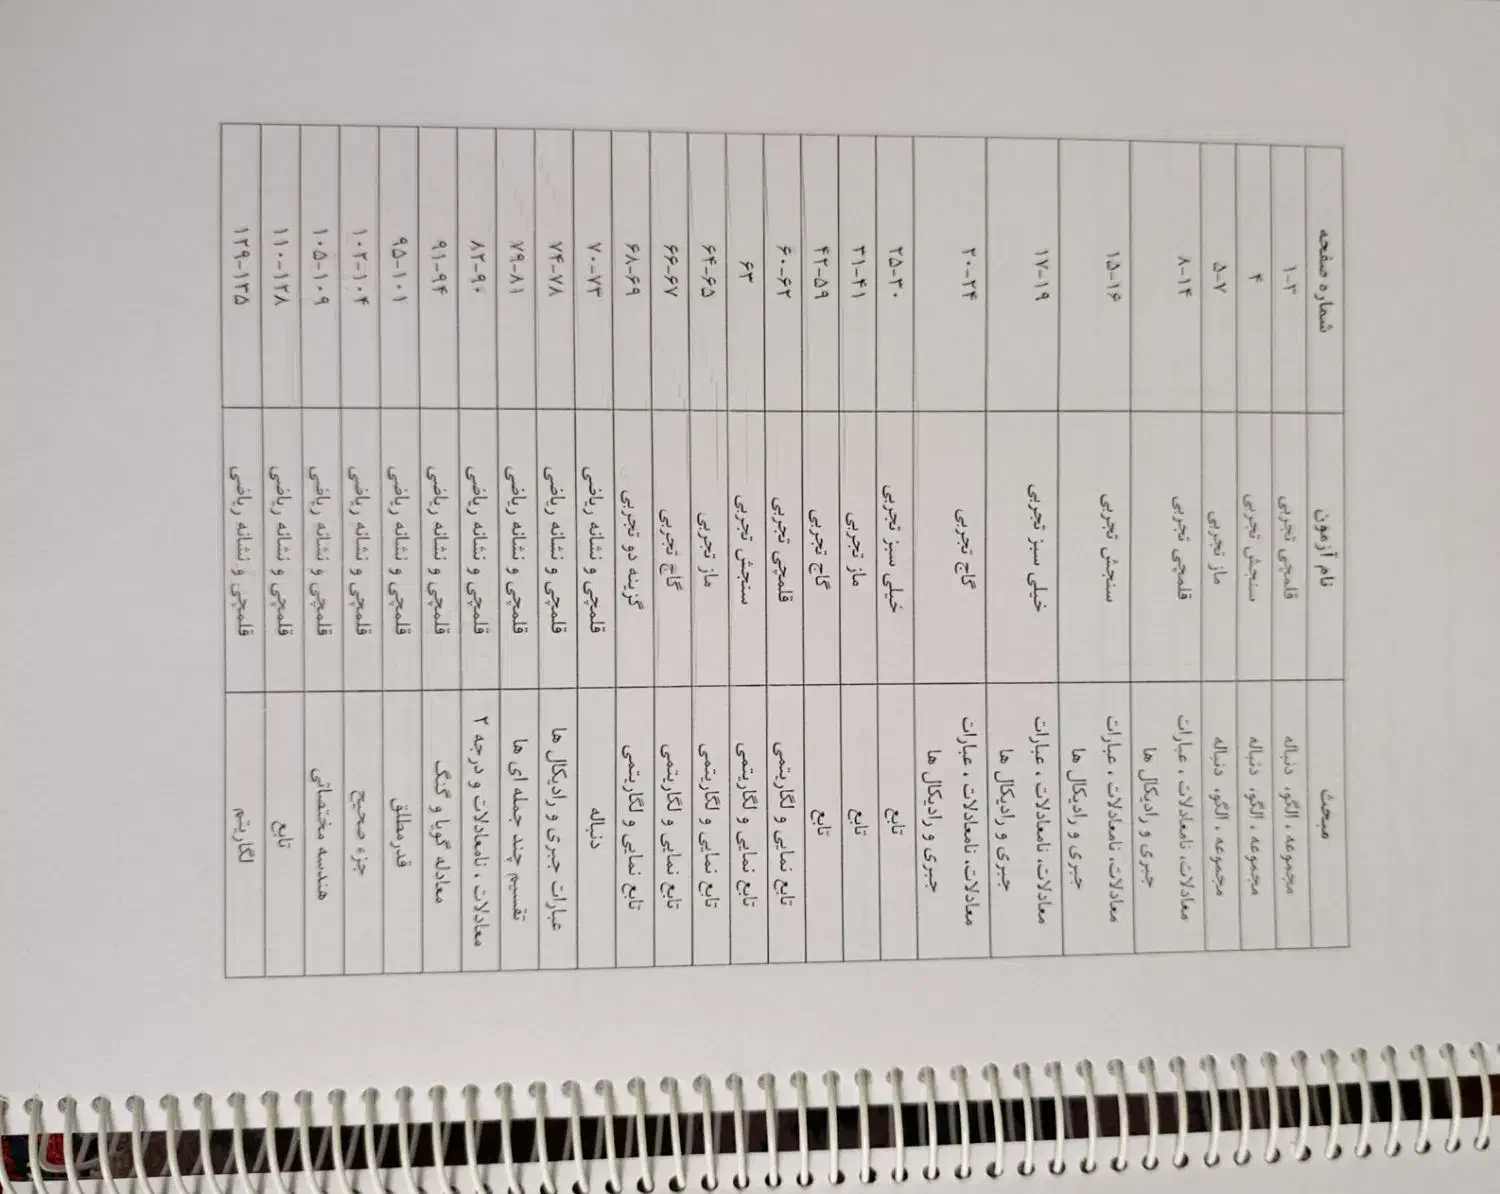 مبحث نام آزمون شماره صفحه
مجموعه ، الگو، دنباله قلمچی تجربی ۱-۳
مجموعه ، الگو، دنباله سنجش تجربی ۴
مجموعه ، الگو، دنباله ماز تجربی ۵-۷
معادلات، نامعادلات ، عبارات قلمچی تجربی ۸-۱۴
جبری و رادیکال ها
معادلات، نامعادلات ، عبارات سنجش تجربی ۱۵-۱۶
جبری و رادیکال ها
معادلات، نامعادلات ، عبارات خیلی سبز تجربی ۱۷-۱۹
جبری و رادیکال ها
معادلات، نامعادلات ، عبارات گاج تجربی ۲۰-۲۴
جبری و رادیکال ها
تابع خیلی سبز تجربی ۲۵-۳۰
تابع ماز تجربی ۳۱-۴۱
تابع گاج تجربی ۴۲-۵۹
تابع نمایی و لگاریتمی قلمچی تجربی ۶۰-۶۲
تابع نمایی و لگاریتمی سنجش تجربی ۶۳
تابع نمایی و لگاریتمی ماز تجربی ۶۴-۶۵
تابع نمایی و لگاریتمی گاج تجربی ۶۶-۶۷
تابع نمایی و لگاریتمی گزینه دو تجربی ۶۸-۶۹
دنباله قلمچی و نشانه ریاضی ۷۰-۷۳
عبارات جبری و رادیکال ها قلمچی و نشانه ریاضی ۷۴-۷۸
تقسیم چند جمله ای ها قلمچی و نشانه ریاضی ۷۹-۸۱
معادلات ، نامعادلات و درجه ۲ قلمچی و نشانه ریاضی ۸۲-۹۰
معادله گویا و گنگ قلمچی و نشانه ریاضی ۹۱-۹۴
قدرمطلق قلمچی و نشانه ریاضی ۹۵-۱۰۱
جزء صحیح قلمچی و نشانه ریاضی ۱۰۲-۱۰۴
هندسه مختصاتی قلمچی و نشانه ریاضی ۱۰۵-۱۰۹
تابع قلمچی و نشانه ریاضی ۱۱۰-۱۲۸
لگاریتم قلمچی و نشانه ریاضی ۱۲۹-۱۳۵